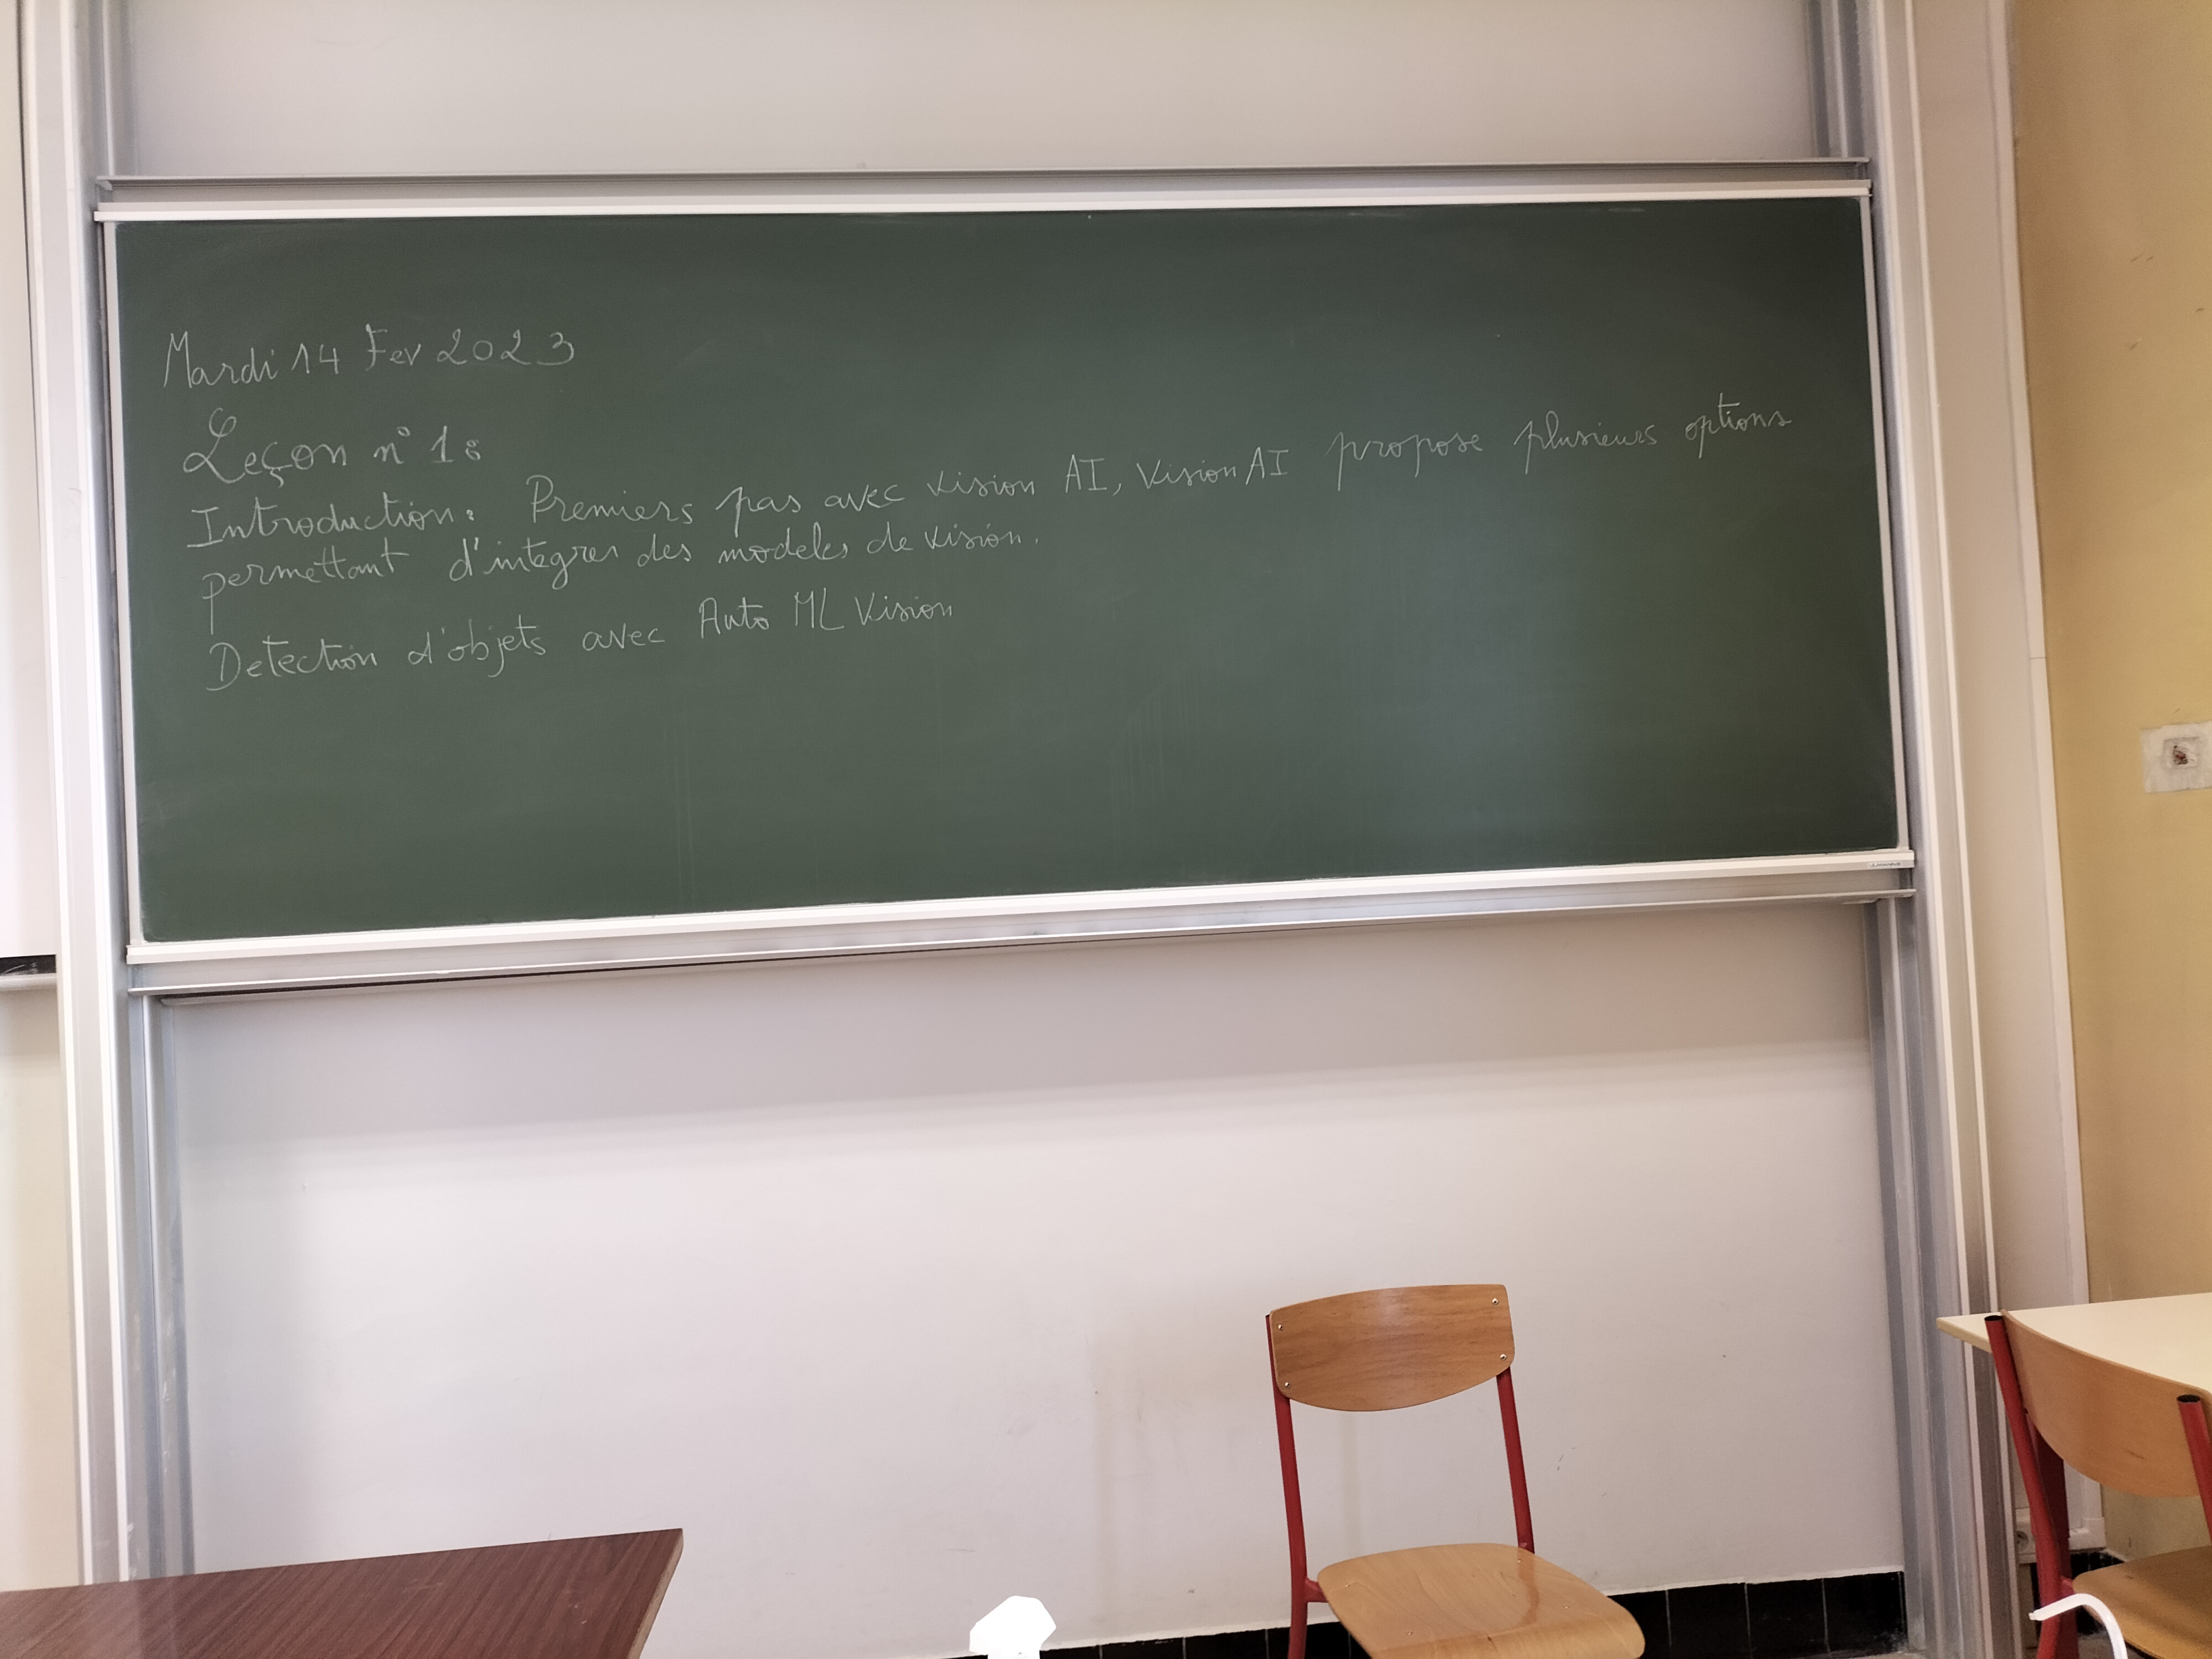 Mardi 14 Fev 2023
Leçon n° 1:
Introduction: Premiers pas avec vision AI, Vision AI propose plusieurs options
permettant d'integrer des modeles de vision.
Detection d'objets avec Auto ML Vision